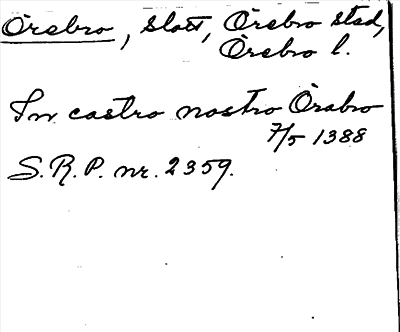 Örebro, slott, Örebro stad,
Örebro l.
In castro nostro Örabro
7/5 1388
S.R.P. nr. 2359.